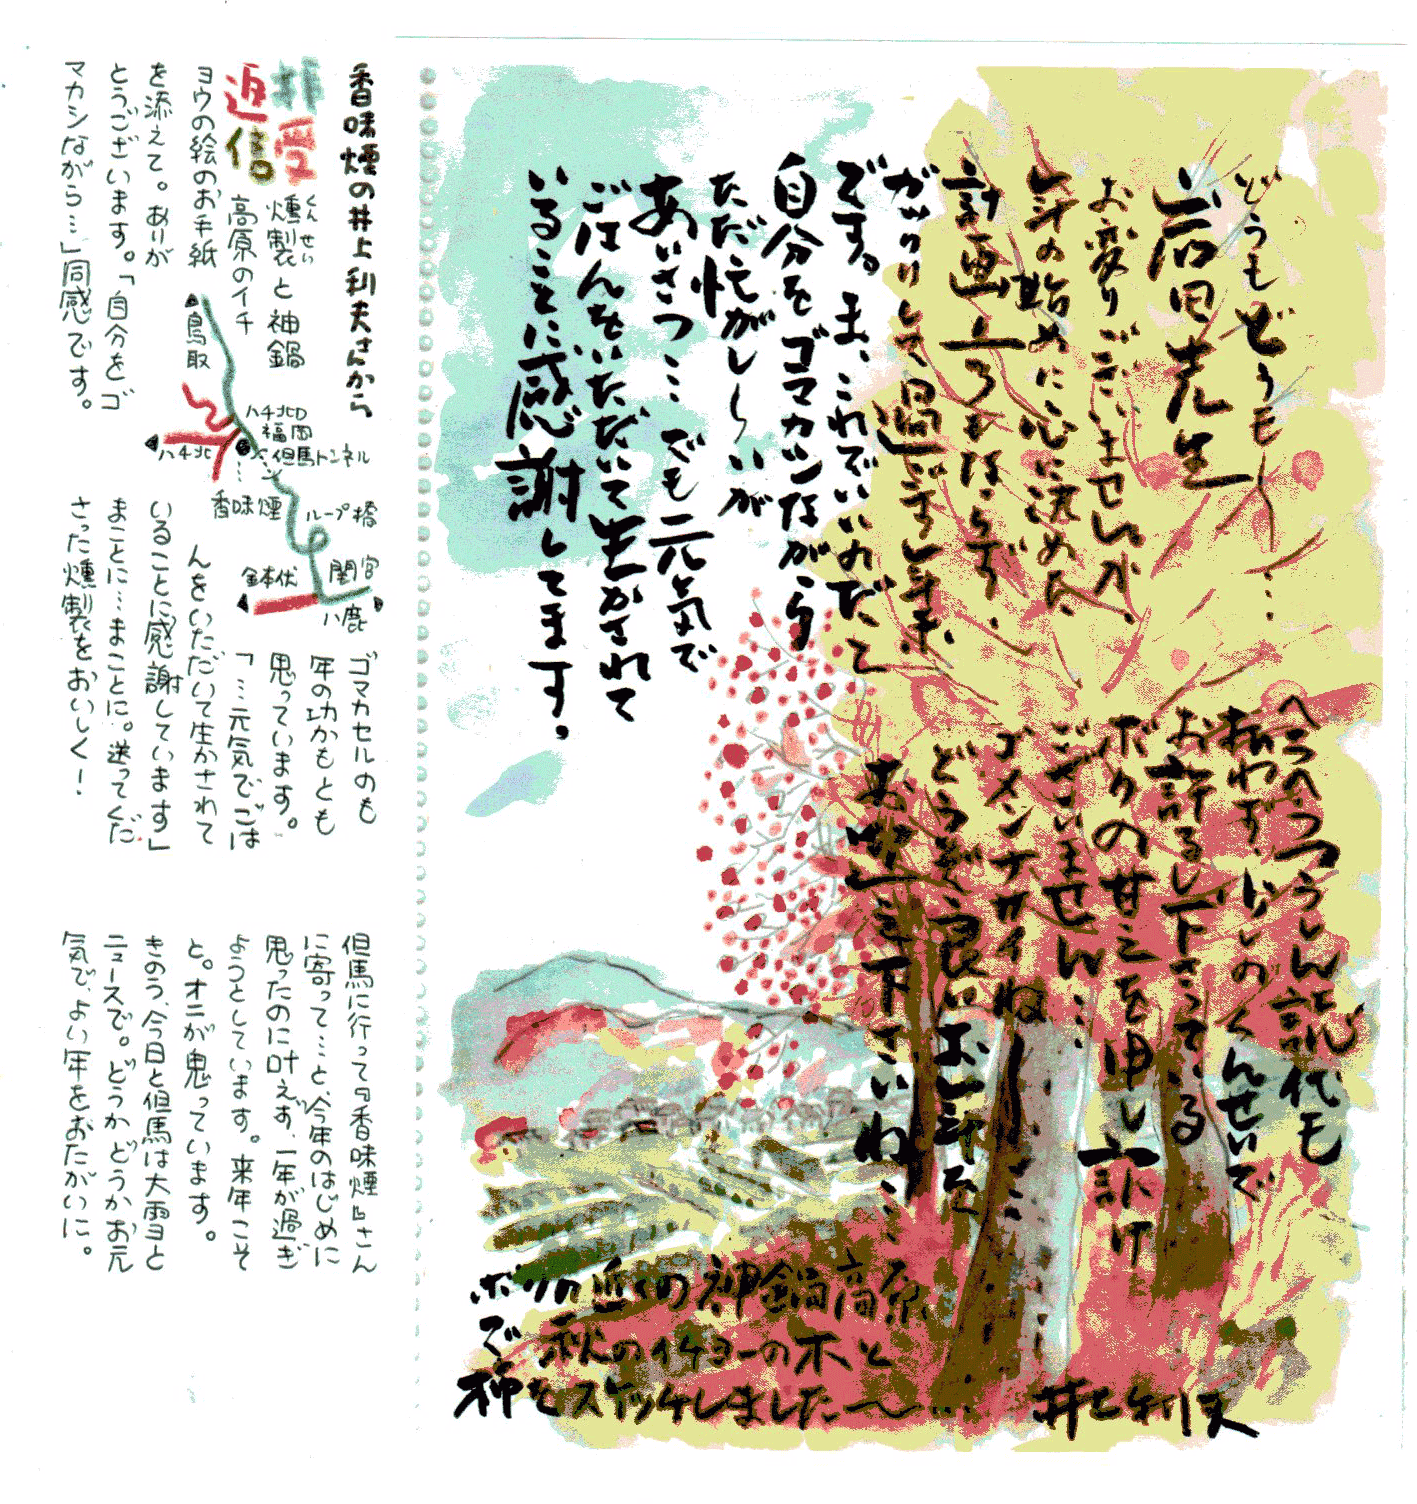 どうもどうも〜…
岩田先生
お変りございませんか、
年の始めに心に決めた
計画一ろもならず、
ガックリして、過ごす
です。ま、これでいいのだと
自分をゴマカシながら
ただ忙がし〜いが
あいさつ…でも元気で
ごはんをいただいて生かされて
いることに感謝してます。
おわず、
お許るし下さっている
ボクの甘えを申し訳け
ございません…
ゴメンナサイね
どうぞ良いお年を
お迎え下さいね…
ボクの近くの神鍋高原
で秋のイチョーの木と
柿をスケッチしました〜…
井上利夫
香味煙の井上利夫さんから
拝受
返信
燻製と神鍋
くんせい
高原のイチ
ョウの絵のお手紙
を添えて。ありが
とうございます。「自分をゴ
マカシながら…」同感です。
鳥取
ハチ北口
福岡
ハチ北
但馬トンネル
香味煙
ループ橋
鉢伏
関宮
八鹿
ゴマカセルのも
年の功かもとも
思っています。
「…元気でごは
んをいただいて生かされて
いることに感謝しています」
まことに…まことに。送ってくだ
さった燻製をおいしく！
但馬に行って『香味煙』さん
に寄って…と、今年のはじめに
思ったのに叶えず、一年が過ぎ
ようとしています。来年こそ
と。オニが鬼っています。
きのう、今日と但馬は大雪と
ニュースで。どうかどうかお元
気で、よい年をおたがいに。